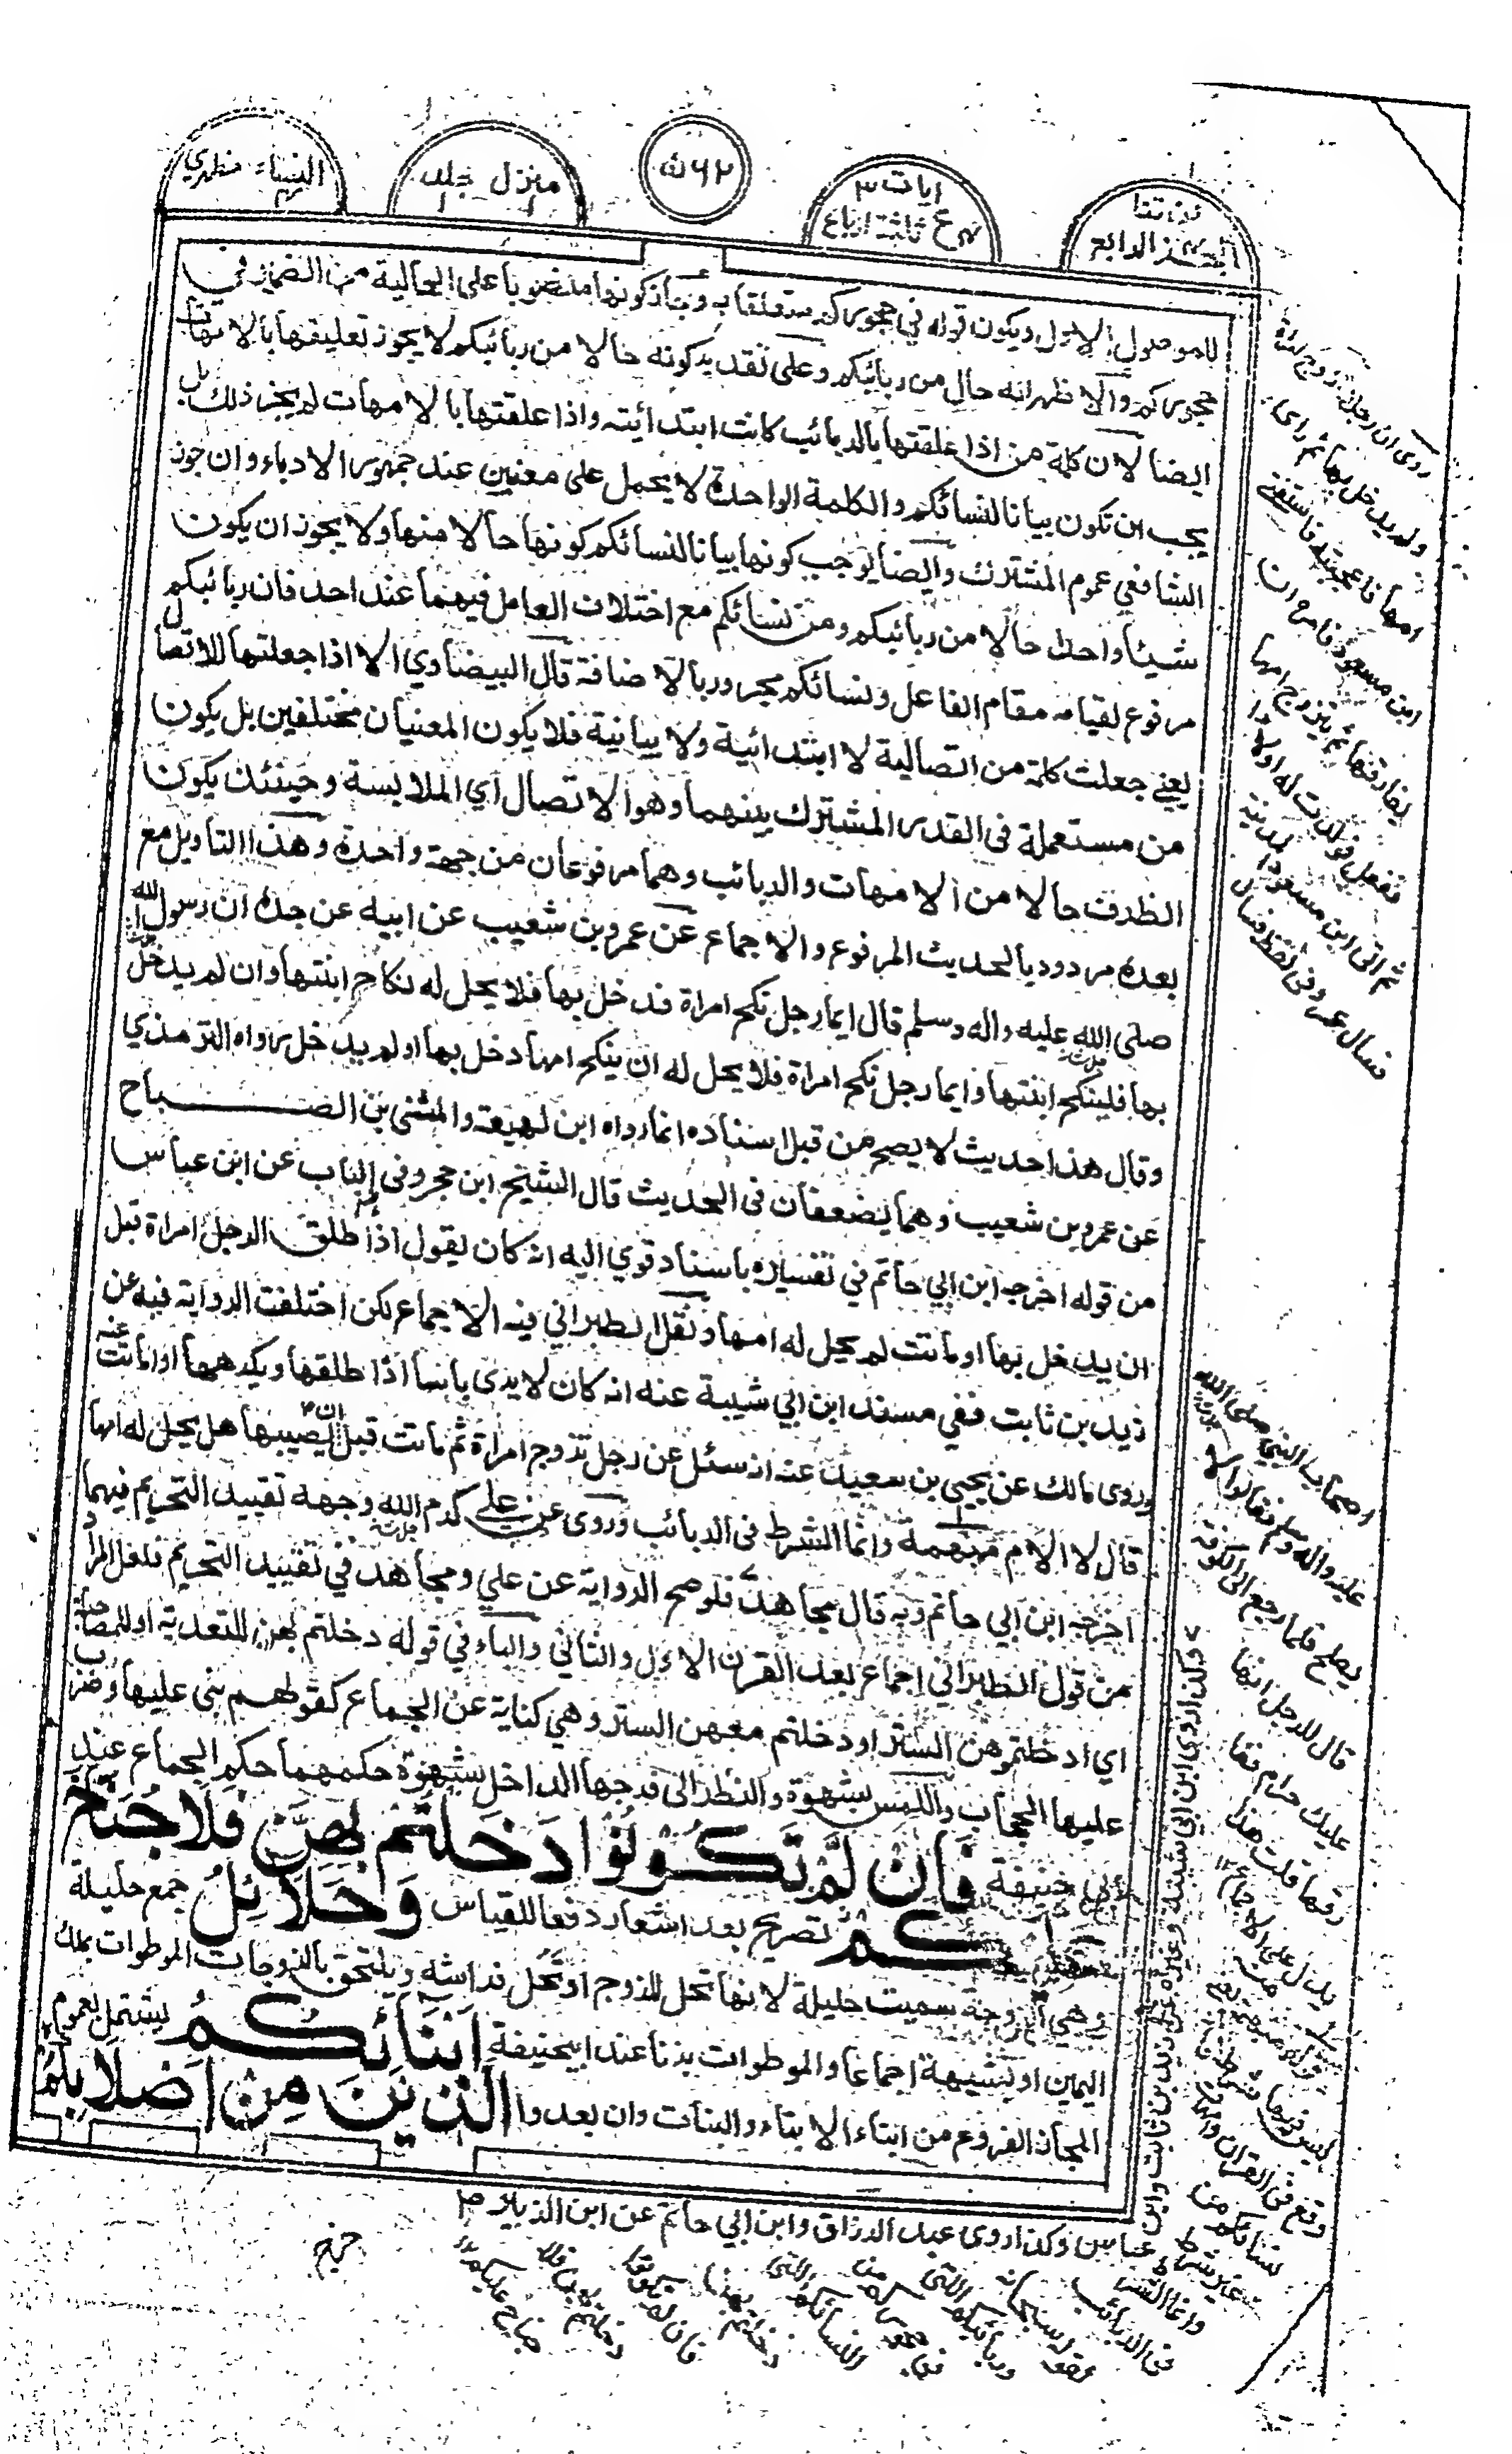 لن تنا
الجزء الرابع
ايات ٣
منزل جلد
النساء مظهري
للموصول الاول ويكون قوله في حجوركم متعلقا به وجاز كونها منصوبا على الحالية من الضمير في
حجوركم والاظهر انه حال من ربائبكم وعلى تقدير كونه حالا من ربائبكم لا يجوز تعليقها بالامهات
ايضا لان كلمة من اذا علقتها بالربائب كانت ابتدائية واذا علقتها بالامهات لم يجز ذلك بل
يجب ان تكون بيانا لنسائكم والكلمة الواحدة لا يحمل على معنيين عند جمهور الادباء وان جوز
الشافعي عموم المشترك وايضا يوجب كونها بيانا لنسائكم كونها حالا منها ولا يجوز ان يكون
شيئا واحدا حالا من ربائبكم ومن نسائكم مع اختلاف العامل فيهما عند احد فان ربائبكم
مرفوع لقيامه مقام الفاعل ونسائكم مجرور بالاضافة قال البيضاوي الا اذا جعلتها للاتصال
يعني جعلت كلمة من اتصالية لا ابتدائية ولا بيانية فلا يكون المعنيان مختلفين بل يكون
من مستعملة في القدر المشترك بينهما وهو الاتصال اي الملابسة وحينئذ يكون
الظرف حالا من الامهات والربائب وهما مرفوعان من جهة واحدة وهذا التاويل مع
بعده مردود بالحديث المرفوع والاجماع عن عمرو بن شعيب عن ابيه عن جده ان رسول الله
صلى الله عليه واله وسلم قال ايما رجل نكح امراة فدخل بها فلا يحل له نكاح ابنتها وان لم يدخل
بها فلينكح ابنتها وايما رجل نكح امراة فلا يحل له ان ينكح امها دخل بها او لم يدخل رواه الترمذي
وقال هذا حديث لا يصح من قبل اسناده انما رواه ابن لهيعة والمثنى بن الصباح
عن عمرو بن شعيب وهما يضعفان في الحديث قال الشيخ ابن حجر وفي الباب عن ابن عباس
من قوله اخرجه ابن ابي حاتم في تفسيره باسناد قوي اليه انه كان يقول اذا طلق الرجل امراة قبل
ان يدخل بها او ماتت لم يحل له امها ونقل الطبراني فيه الاجماع لكن اختلفت الرواية فيه عن
زيد بن ثابت ففي مسند ابن ابي شيبة عنه انه كان لا يرى باسا اذا طلقها ويكرهها اذا ماتت عنه
وروى مالك عن يحيى بن سعيد عنه انه سئل عن رجل تزوج امراة ثم ماتت قبل ان يصيبها هل يحل له امها
قال لا الام مبهمة وانما الشرط في الربائب وروى عن علي كرم الله وجهه تقييد التحريم فيهما
اخرجه ابن ابي حاتم وبه قال مجاهد فلو صح الرواية عن علي ومجاهد في تقييد التحريم فلعل المراد
من قول الطبراني اجماع بعد القرن الاول والثاني والباء في قوله دخلتم بهن للتعدية او للمصاحبة
اي ادخلتموهن الستر او دخلتم معهن الستر وهي كناية عن الجماع كقولهم بنى عليها وضرب
عليها الحجاب واللمس بشهوة والنظر الى فرجها الداخل بشهوة حكمهما حكم الجماع عند
ابي حنيفة فَاِنْ لَّمْ تَكُوْنُوْا دَخَلْتُمْ بِهِنَّ فَلَا جُنَاحَ
عَلَيْكُمْ تصريح بعد اشعار دفعا للقياس وَحَلَائِلُ جمع حليلة
وهي الزوجة سميت حليلة لانها تحل للزوج او تحل فراشه ويلتحق بالزوجات الموطوات بملك
اليمين او بشبهة اجماعا والموطوات بزنا عند ابيحنيفة اَبْنَائِكُمُ يشتمل بعموم
المجاز الفروع من ابناء الابناء والبنات وان بعدوا الَّذِيْنَ مِنْ اَصْلَابِكُمْ
روى ان رجلا تزوج امراة
ولم يدخل بها ثم راى
امها فاعجبته فاستفتى
ابن مسعود فامره ان
يفارقها ثم يتزوج امها
ففعل فولدت له اولادا
ثم اتى ابن مسعود المدينة
فسال عمر وفي لفظ فسال
اصحاب النبي صلى الله
عليه واله وسلم فقالوا لا
يصلح فلما رجع الى الكوفة
قال للرجل انها
عليك حرام ففا
رقها قلت هذا
يدل على الاجماع
وكذا روى ابن ابي شيبة وغيره عن زيد بن ثابت وابن
عباس وكذا روى عبد الرزاق وابن ابي حاتم عن ابن الزبير